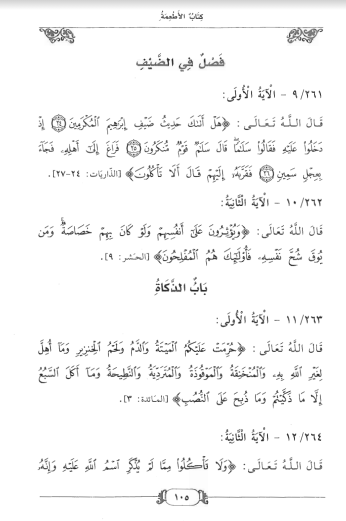 كِتَابُ الأَطْعِمَةُ
فَصْلٌ فِي الضَّيْفِ
٩/٢٦١ - الْآيَةُ الْأُولَى:
قَالَ اللَّهُ تَعَالَى: ﴿هَلْ أَتَىٰكَ حَدِيثُ ضَيْفِ إِبْرَٰهِيمَ الْمُكْرَمِينَ ۝٢٤ إِذْ
دَخَلُوا عَلَيْهِ فَقَالُوا سَلَٰمًا قَالَ سَلَٰمٌ قَوْمٌ مُّنكَرُونَ ۝٢٥ فَرَاغَ إِلَىٰٓ أَهْلِهِۦ فَجَآءَ
بِعِجْلٍ سَمِينٍ ۝٢٦ فَقَرَّبَهُۥٓ إِلَيْهِمْ قَالَ أَلَا تَأْكُلُونَ﴾ [الذَّارِيَات: ٢٤-٢٧].
١٠/٢٦٢ - الْآيَةُ الثَّانِيَةُ:
قَالَ اللَّهُ تَعَالَى: ﴿وَيُؤْثِرُونَ عَلَىٰٓ أَنفُسِهِمْ وَلَوْ كَانَ بِهِمْ خَصَاصَةٌ ۚ وَمَن
يُوقَ شُحَّ نَفْسِهِۦ فَأُولَٰٓئِكَ هُمُ الْمُفْلِحُونَ﴾ [الحَشر: ٩].
بَابُ الذَّكَاةُ
١١/٢٦٣ - الْآيَةُ الْأُولَى:
قَالَ اللَّهُ تَعَالَى: ﴿حُرِّمَتْ عَلَيْكُمُ الْمَيْتَةُ وَالدَّمُ وَلَحْمُ الْخِنزِيرِ وَمَآ أُهِلَّ
لِغَيْرِ اللَّهِ بِهِۦ وَالْمُنْخَنِقَةُ وَالْمَوْقُوذَةُ وَالْمُتَرَدِّيَةُ وَالنَّطِيحَةُ وَمَآ أَكَلَ السَّبُعُ
إِلَّا مَا ذَكَّيْتُمْ وَمَا ذُبِحَ عَلَى النُّصُبِ﴾ [المَائدة: ٣].
١٢/٢٦٤ - الْآيَةُ الثَّانِيَةُ:
قَالَ اللَّهُ تَعَالَى: ﴿وَلَا تَأْكُلُوا مِمَّا لَمْ يُذْكَرِ اسْمُ اللَّهِ عَلَيْهِ وَإِنَّهُۥ
١٠٥